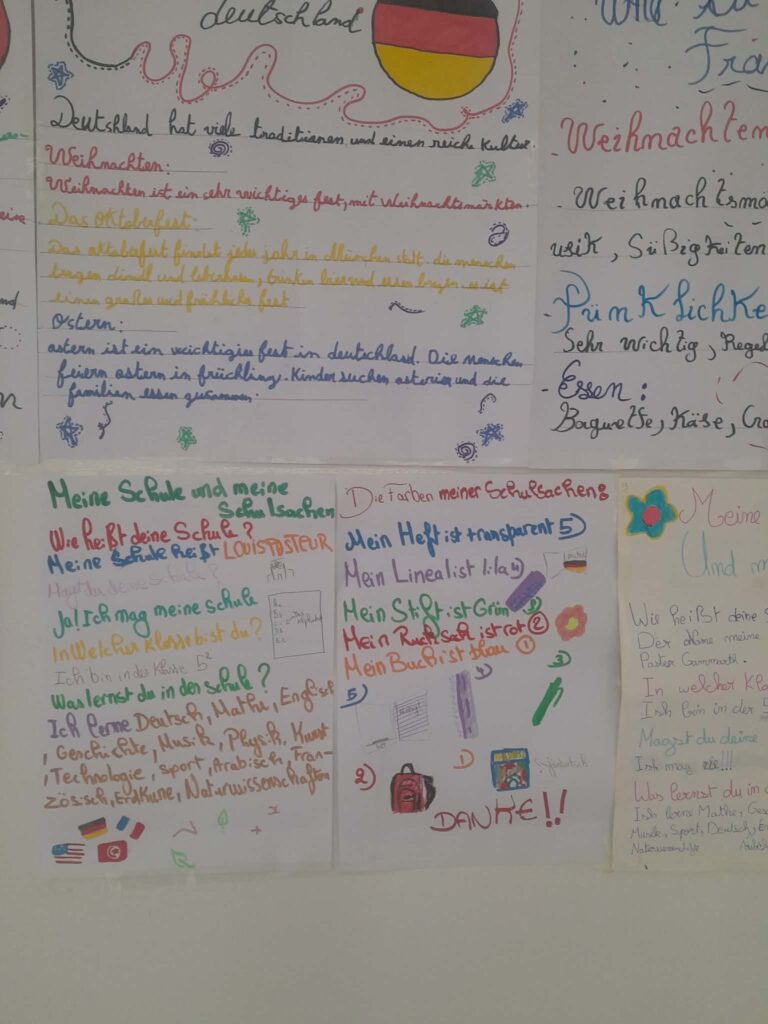 deutschland
Deutschland hat viele traditionen und einen reiche Kultur.
Weihnachten:
Weihnachten ist ein sehr wichtiges fest, mit Weihnachtsmärkten.
Das Oktoberfest:
findet jedes jahr in München statt. die menschen
tragen dirndl und lederhosen, trinken bier und essen brezen. es ist
einen großes und fröhliche fest
Ostern:
ostern ist ein wichtiges fest in deutschland. Die menschen
feiern ostern in früchling. Kinder suchen osterier und die
familien essen zusammen.
Fra
- Weihnachten
- Weihnachtsmä
usik, Süßigkeiten
- Pünklichke
Sehr wichtig, Regel
- Essen:
Baguette, Käse, Cro
Meine Schule und meine
Schulsachen
Wie heißt deine Schule?
Meine Schule heißt LOUIS PASTEUR
Magst du deine Schule?
Ja! Ich mag meine Schule
In Welcher Klasse bist du?
Ich bin in der Klasse 5²
Was lernst du in der Schule?
Ich lerne Deutsch, Mathe, Englisch
, Geschichte, Musik, Physik, Kunst
, Technologie, sport, Arabisch, Fran-
zösisch, ErdKune, Naturwissenschaften
Die Farben meiner Schulsachen:
Mein Heft ist transparent 5)
Mein Lineal ist lila 4)
Mein Stift ist Grün 3)
Mein Rucksack ist rot 2
Mein Buch ist blau 1
5)
4)
3)
2)
1)
DANKE!!
Meine
Und m
Wie heißt deine S
Der Name meine
Paster Gammarth.
In welcher Kla
Ish bin in der 5
Magst du deine
Ish mag sie!!!
Was lernst du in d
Ish lerne Mathe, Ges
Musik, Sport, Deutsch, En